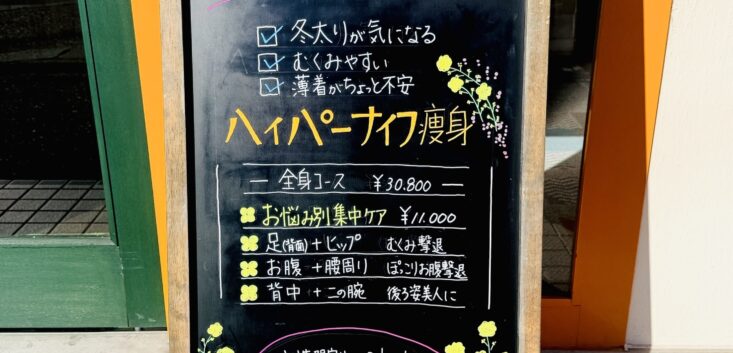 冬太りが気になる
むくみやすい
薄着がちょっと不安
ハイパーナイフ痩身
全身コース ¥30.800
お悩み別集中ケア ¥11.000
足(背面)+ヒップ むくみ撃退
お腹+腰周り ぽっこりお腹撃退
背中+二の腕 後ろ姿美人に